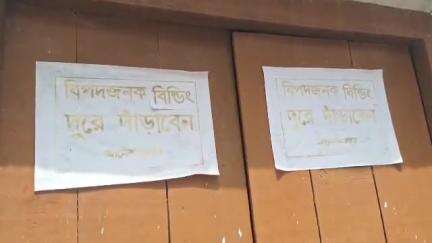 বিপদজনক বিল্ডিং
দূরে দাঁড়াবেন
বিপদজনক বিল্ডিং
দূরে দাঁড়াবেন